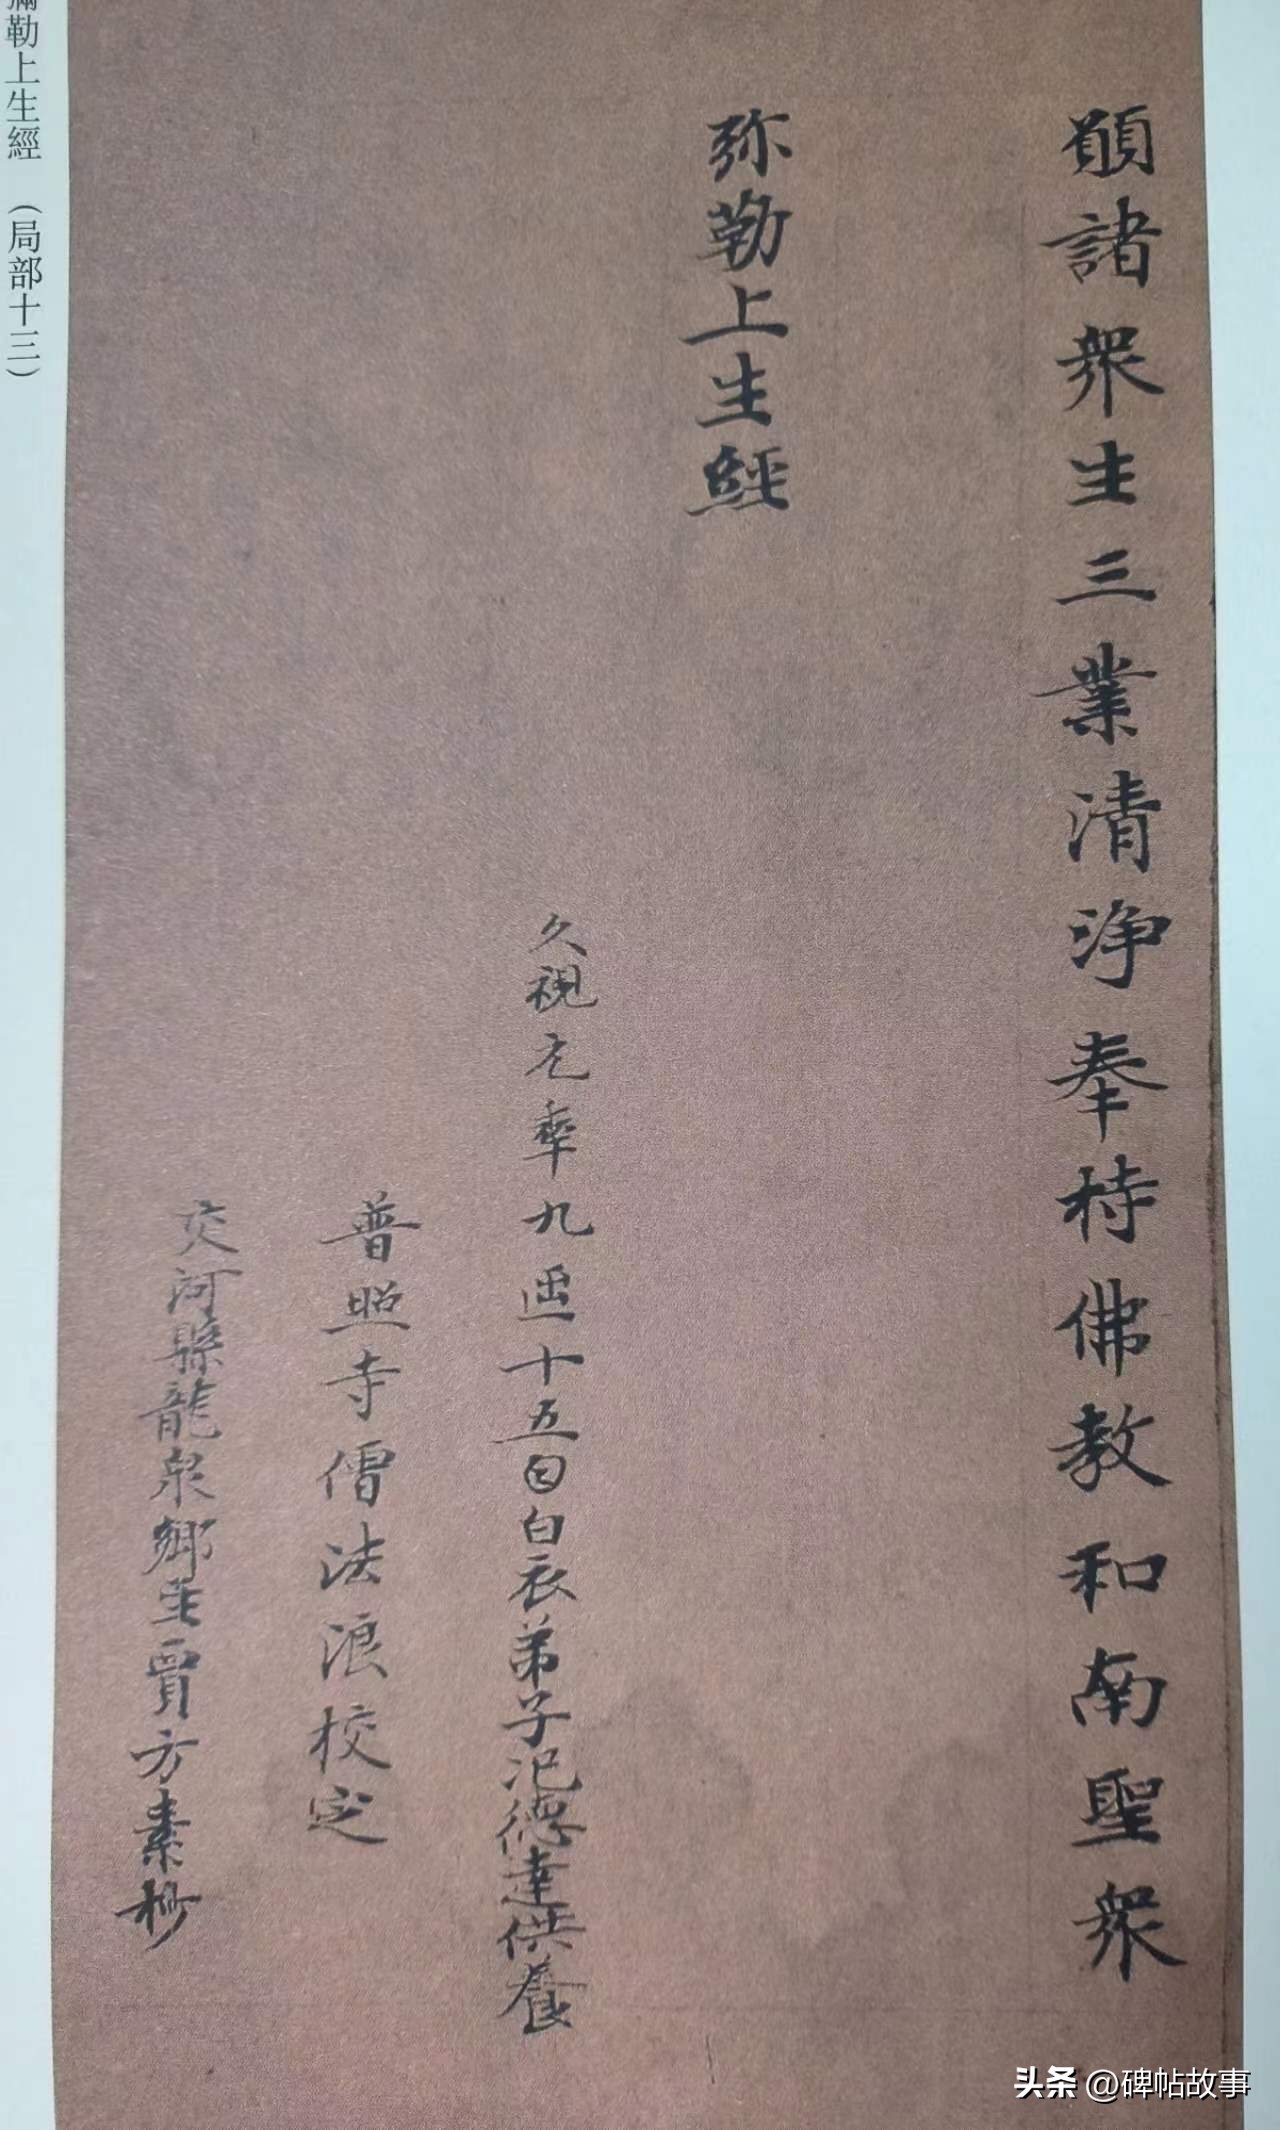 願諸衆生三業清浄奉持佛教和南聖衆
弥勒上生經
久視元𠡦九𠥱十五𡆠白衣弟子氾德達供養
普照寺僧法浪校定
交河縣龍泉鄉𤯔賈方素抄
彌勒上生經 （局部十三）
头条 @碑帖故事